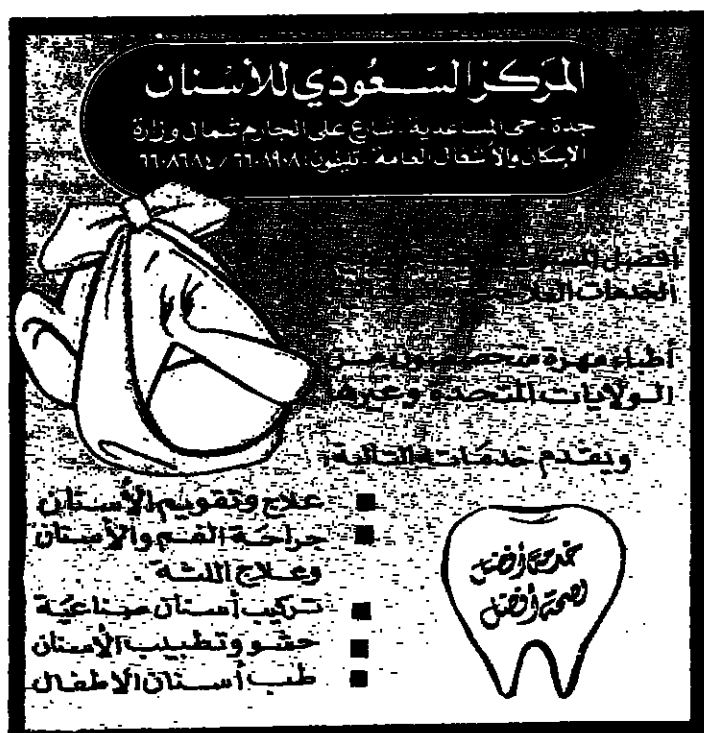 المركز السعودي للأسنان
جدة - حي المساعدية - شارع علي الجارم شمال وزارة
الإسكان والأشغال العامة - تليفون: ٦٦٠٨٦٨٤/٦٦٠١٩٠٨
أفضل
الخدمات
أطباء مهرة متخصصون من
الولايات المتحدة وغيرها
ويقدم خدماته التالية
علاج وتقويم الأسنان
جراحة الفم والأسنان
وعلاج اللثة
تركيب أسنان صناعية
حشو وتطبيب الأسنان
طب أسنان الأطفال
خدمة أفضل
لصحة أفضل